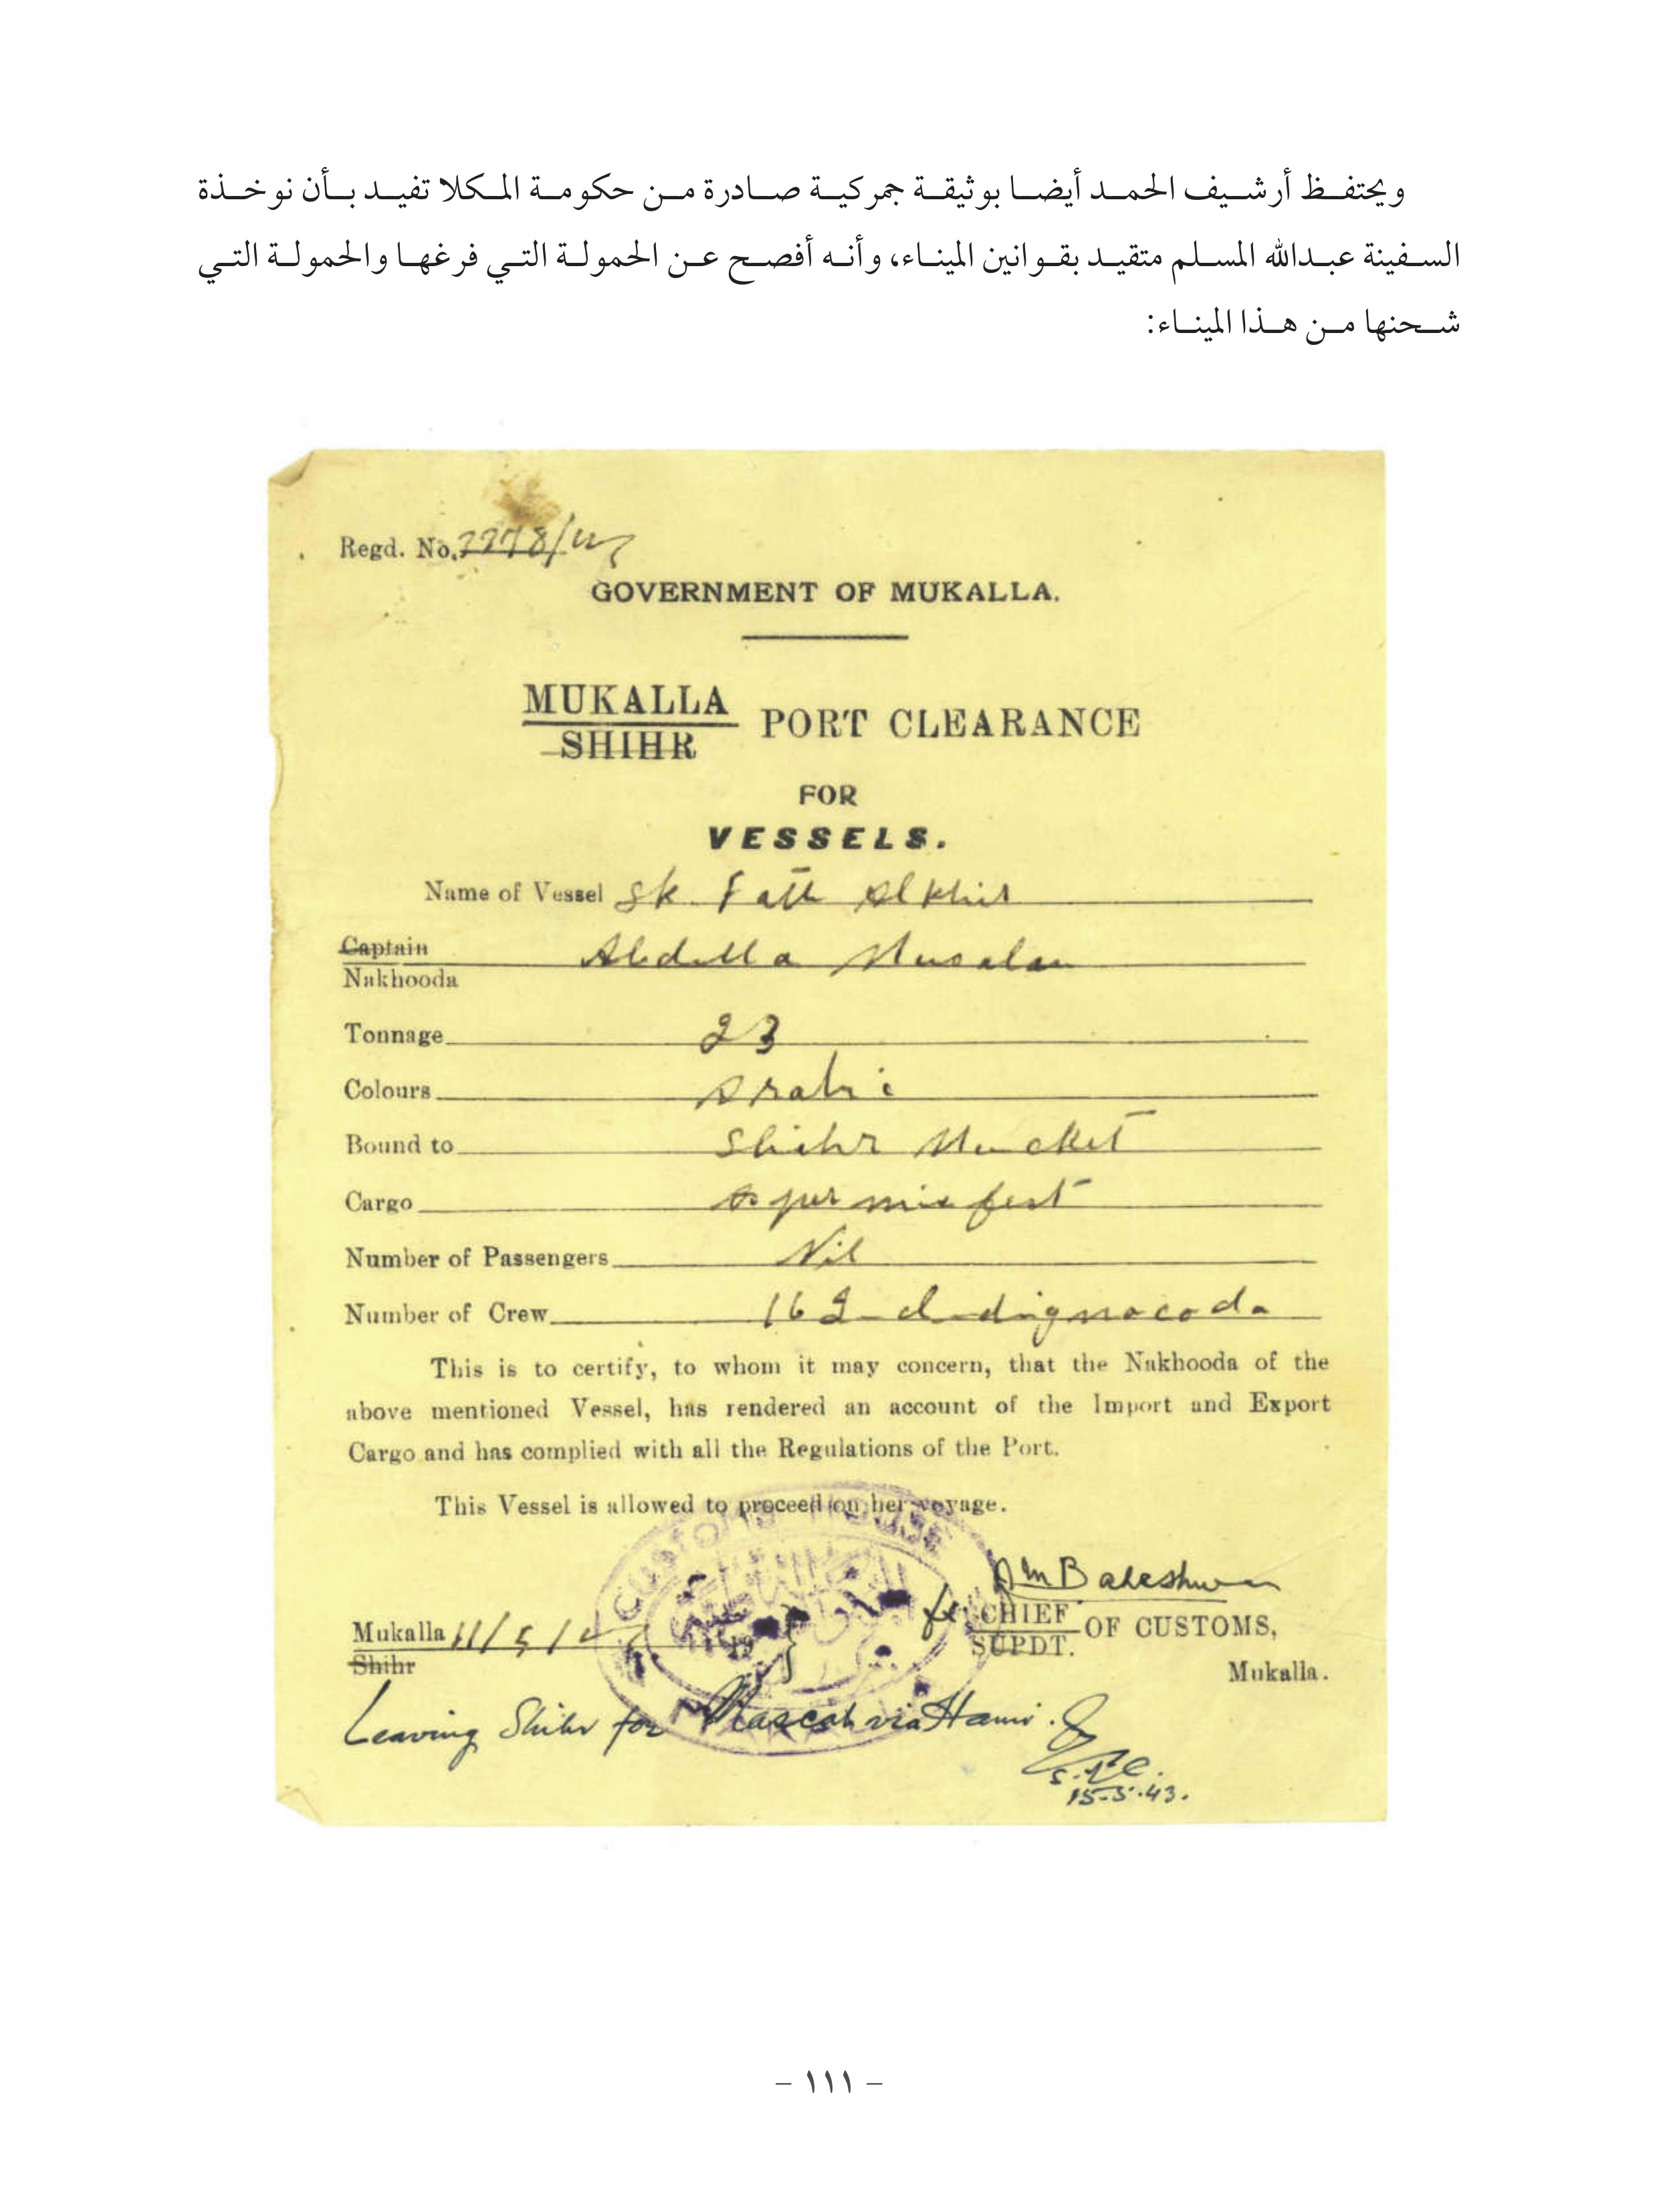 ويحتفظ أرشيف الحمد أيضا بوثيقة جمركية صادرة من حكومة المكلا تفيد بأن نوخذة
السفينة عبدالله المسلم متقيد بقوانين الميناء، وأنه أفصح عن الحمولة التي فرغها والحمولة التي
شحنها من هذا الميناء:
Regd. No.
GOVERNMENT OF MUKALLA.
MUKALLA
SHIHR
PORT CLEARANCE
FOR
VESSELS.
Name of Vessel Sk. Fath Alkhir
Captain
Nakhooda
Abdulla Musalam
Tonnage 23
Colours Arabi
Bound to Shihr
Cargo as per
Number of Passengers Nil
Number of Crew 16
This is to certify, to whom it may concern, that the Nakhooda of the
above mentioned Vessel, has rendered an account of the Import and Export
Cargo and has complied with all the Regulations of the Port.
This Vessel is allowed to proceed on her voyage.
CUSTOMS HOUSE
CHIEF
SUPDT.
OF CUSTOMS,
Mukalla.
Mukalla 11/5/
Shihr
Leaving Shihr for Mascat via Hami.
15-5-43.
- ١١١ -